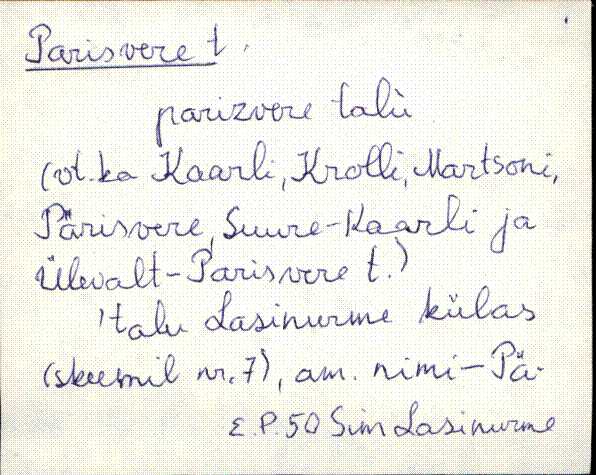 Parisvere t.
parizvere talù
(vt. ka Kaarli, Krolli, Martsoni,
Pärisvere, Suure-Kaarli ja
Ülevalt-Parisvere t.)
'talu Lasinurme külas
(skeemil nr. 7), am. nimi - Pä-
E.P. 50 Sim Lasinurme